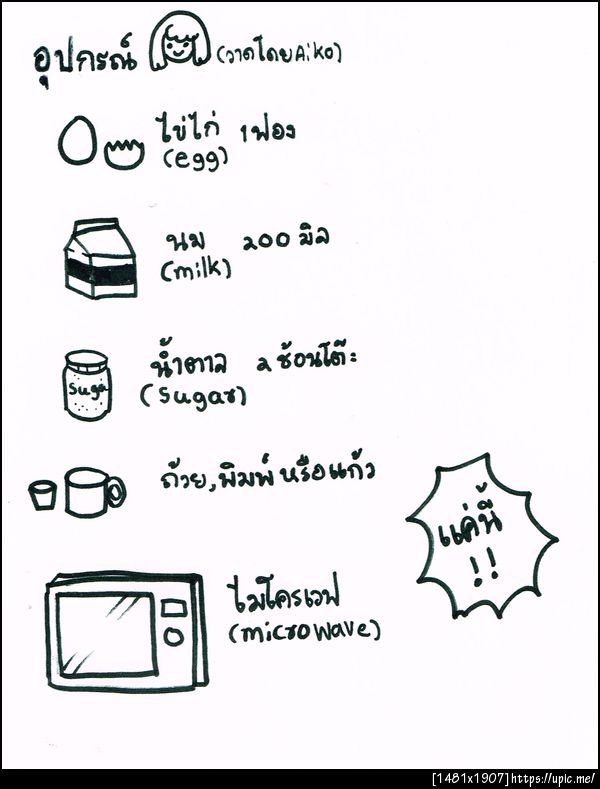 อุปกรณ์ (วาดโดยAiko)
ไข่ไก่ 1 ฟอง
(egg)
นม 200 มิล
(milk)
น้ำตาล 2 ช้อนโต๊ะ
Suga
(Sugar)
ถ้วย, พิมพ์ หรือแก้ว
แค่นี้
!!
ไมโครเวฟ
(microwave)
[1481x1907]https://upic.me/